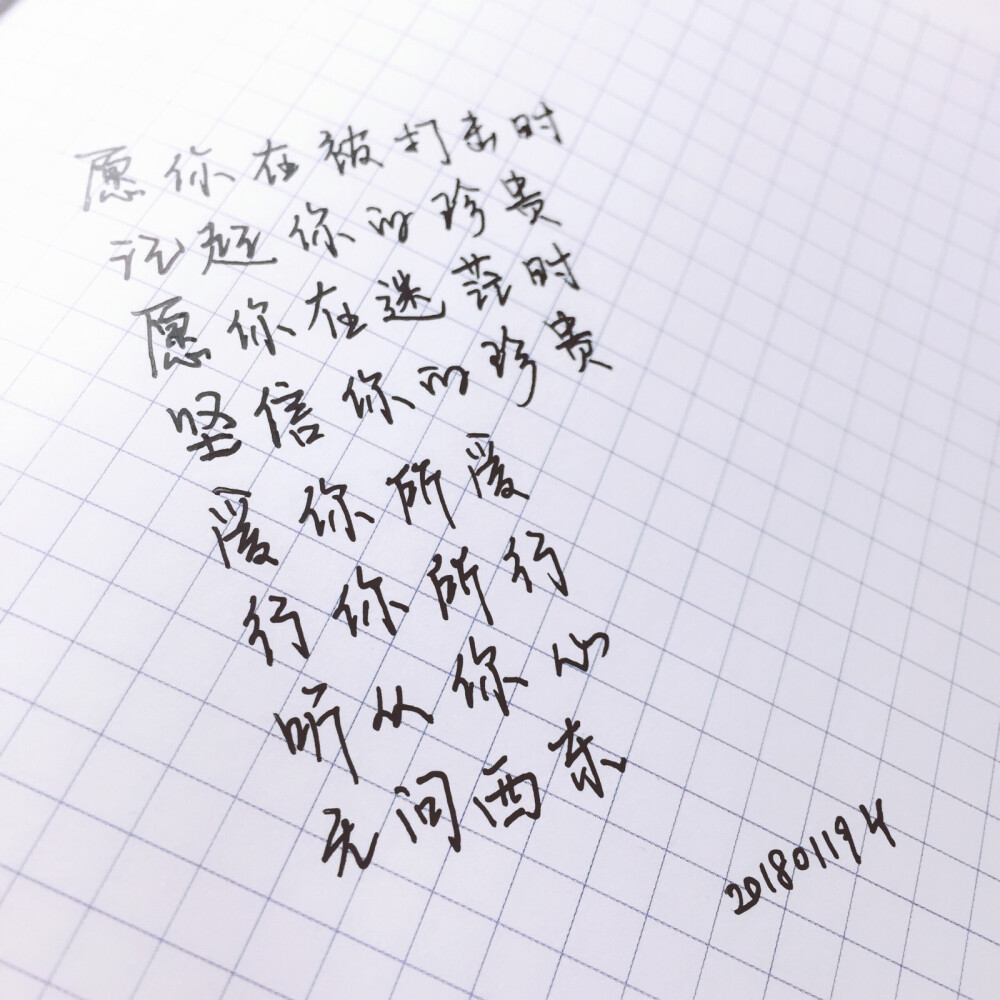 愿你在被打击时
记起你的珍贵
愿你在迷茫时
坚信你的珍贵
爱你所爱
行你所行
听从你心
无问西东
20180119